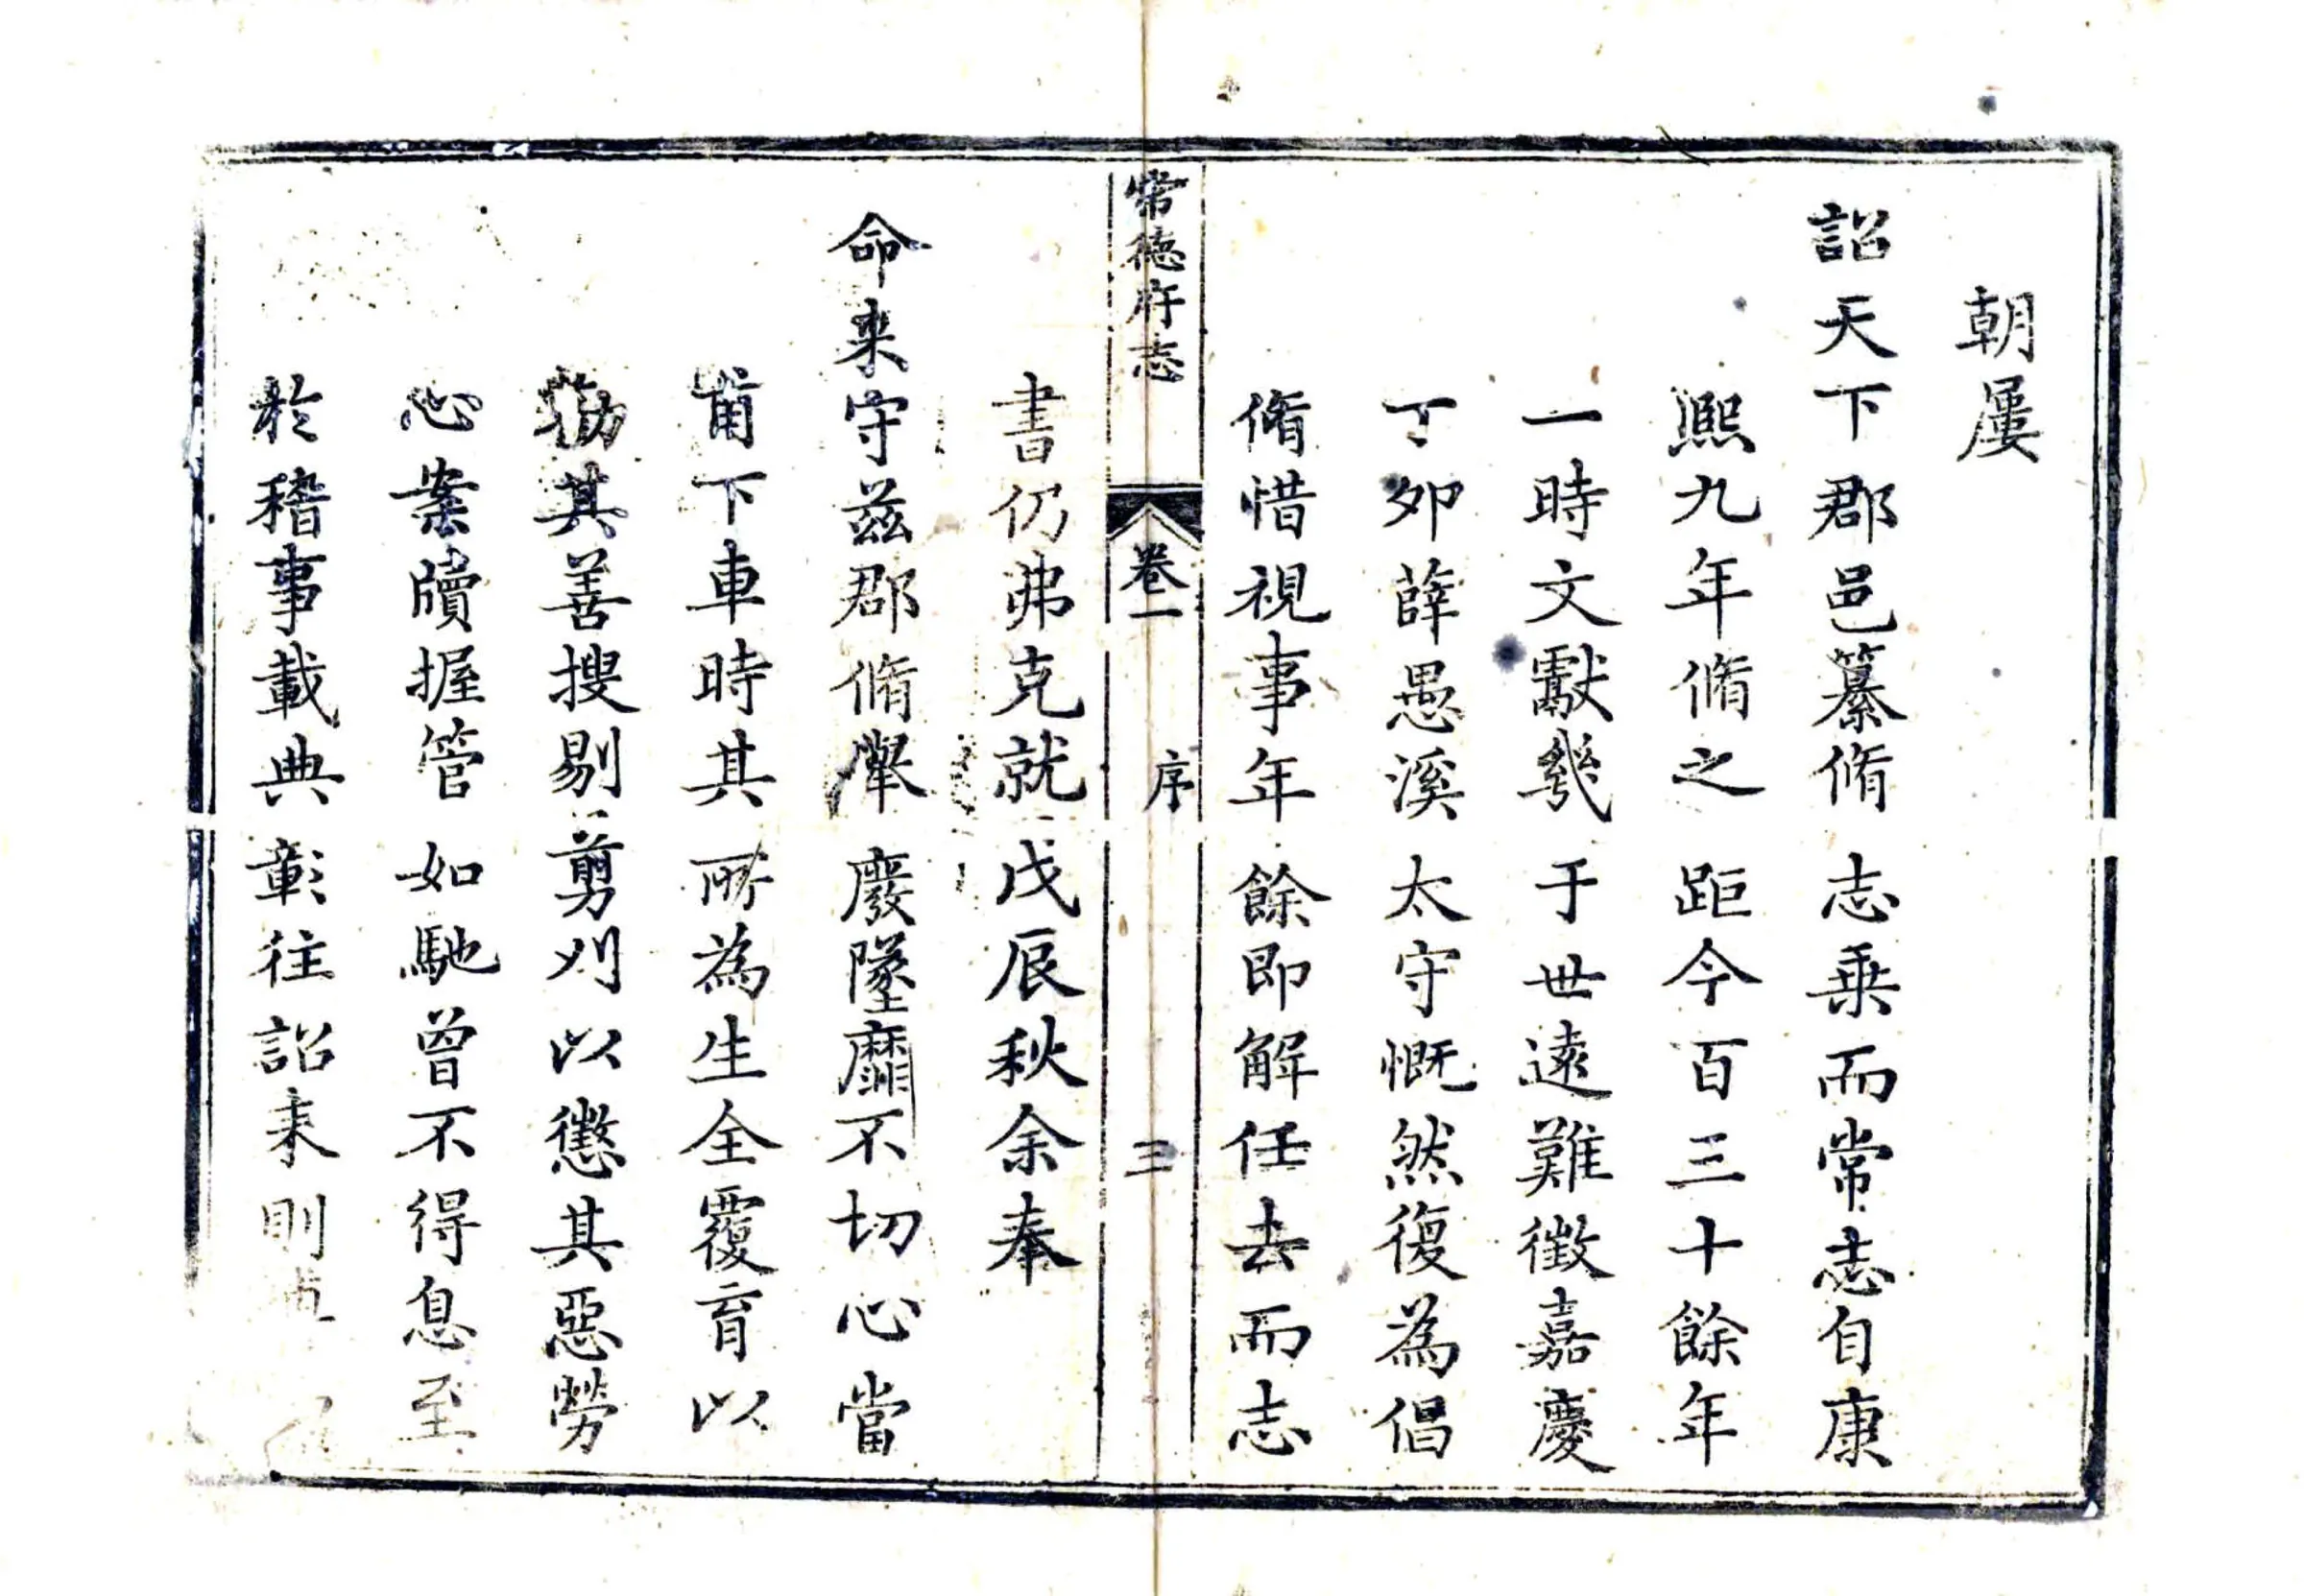 朝屢
詔天下郡邑纂脩志乗而常志自康
熙九年脩之距今百三十餘年
一時文獻幾于世遠難徵嘉慶
丁夘薛愚溪太守慨然復為倡
脩惜視事年餘即解任去而志
常德府志
卷一
序
三
書仍弗克就戊辰秋余奉
命来守兹郡脩舉廢墜靡不切心當
甫下車時其所為生全覆育以
勸其善搜剔剪刈以懲其惡勞
心案牘握管如馳曽不得息至
於稽事載典彰往詔来則